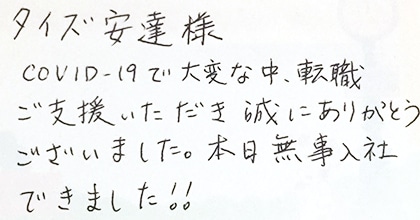 タイズ安達様
COVID-19で大変な中、転職
ご支援いただき誠にありがとう
ございました。本日無事入社
できました!!